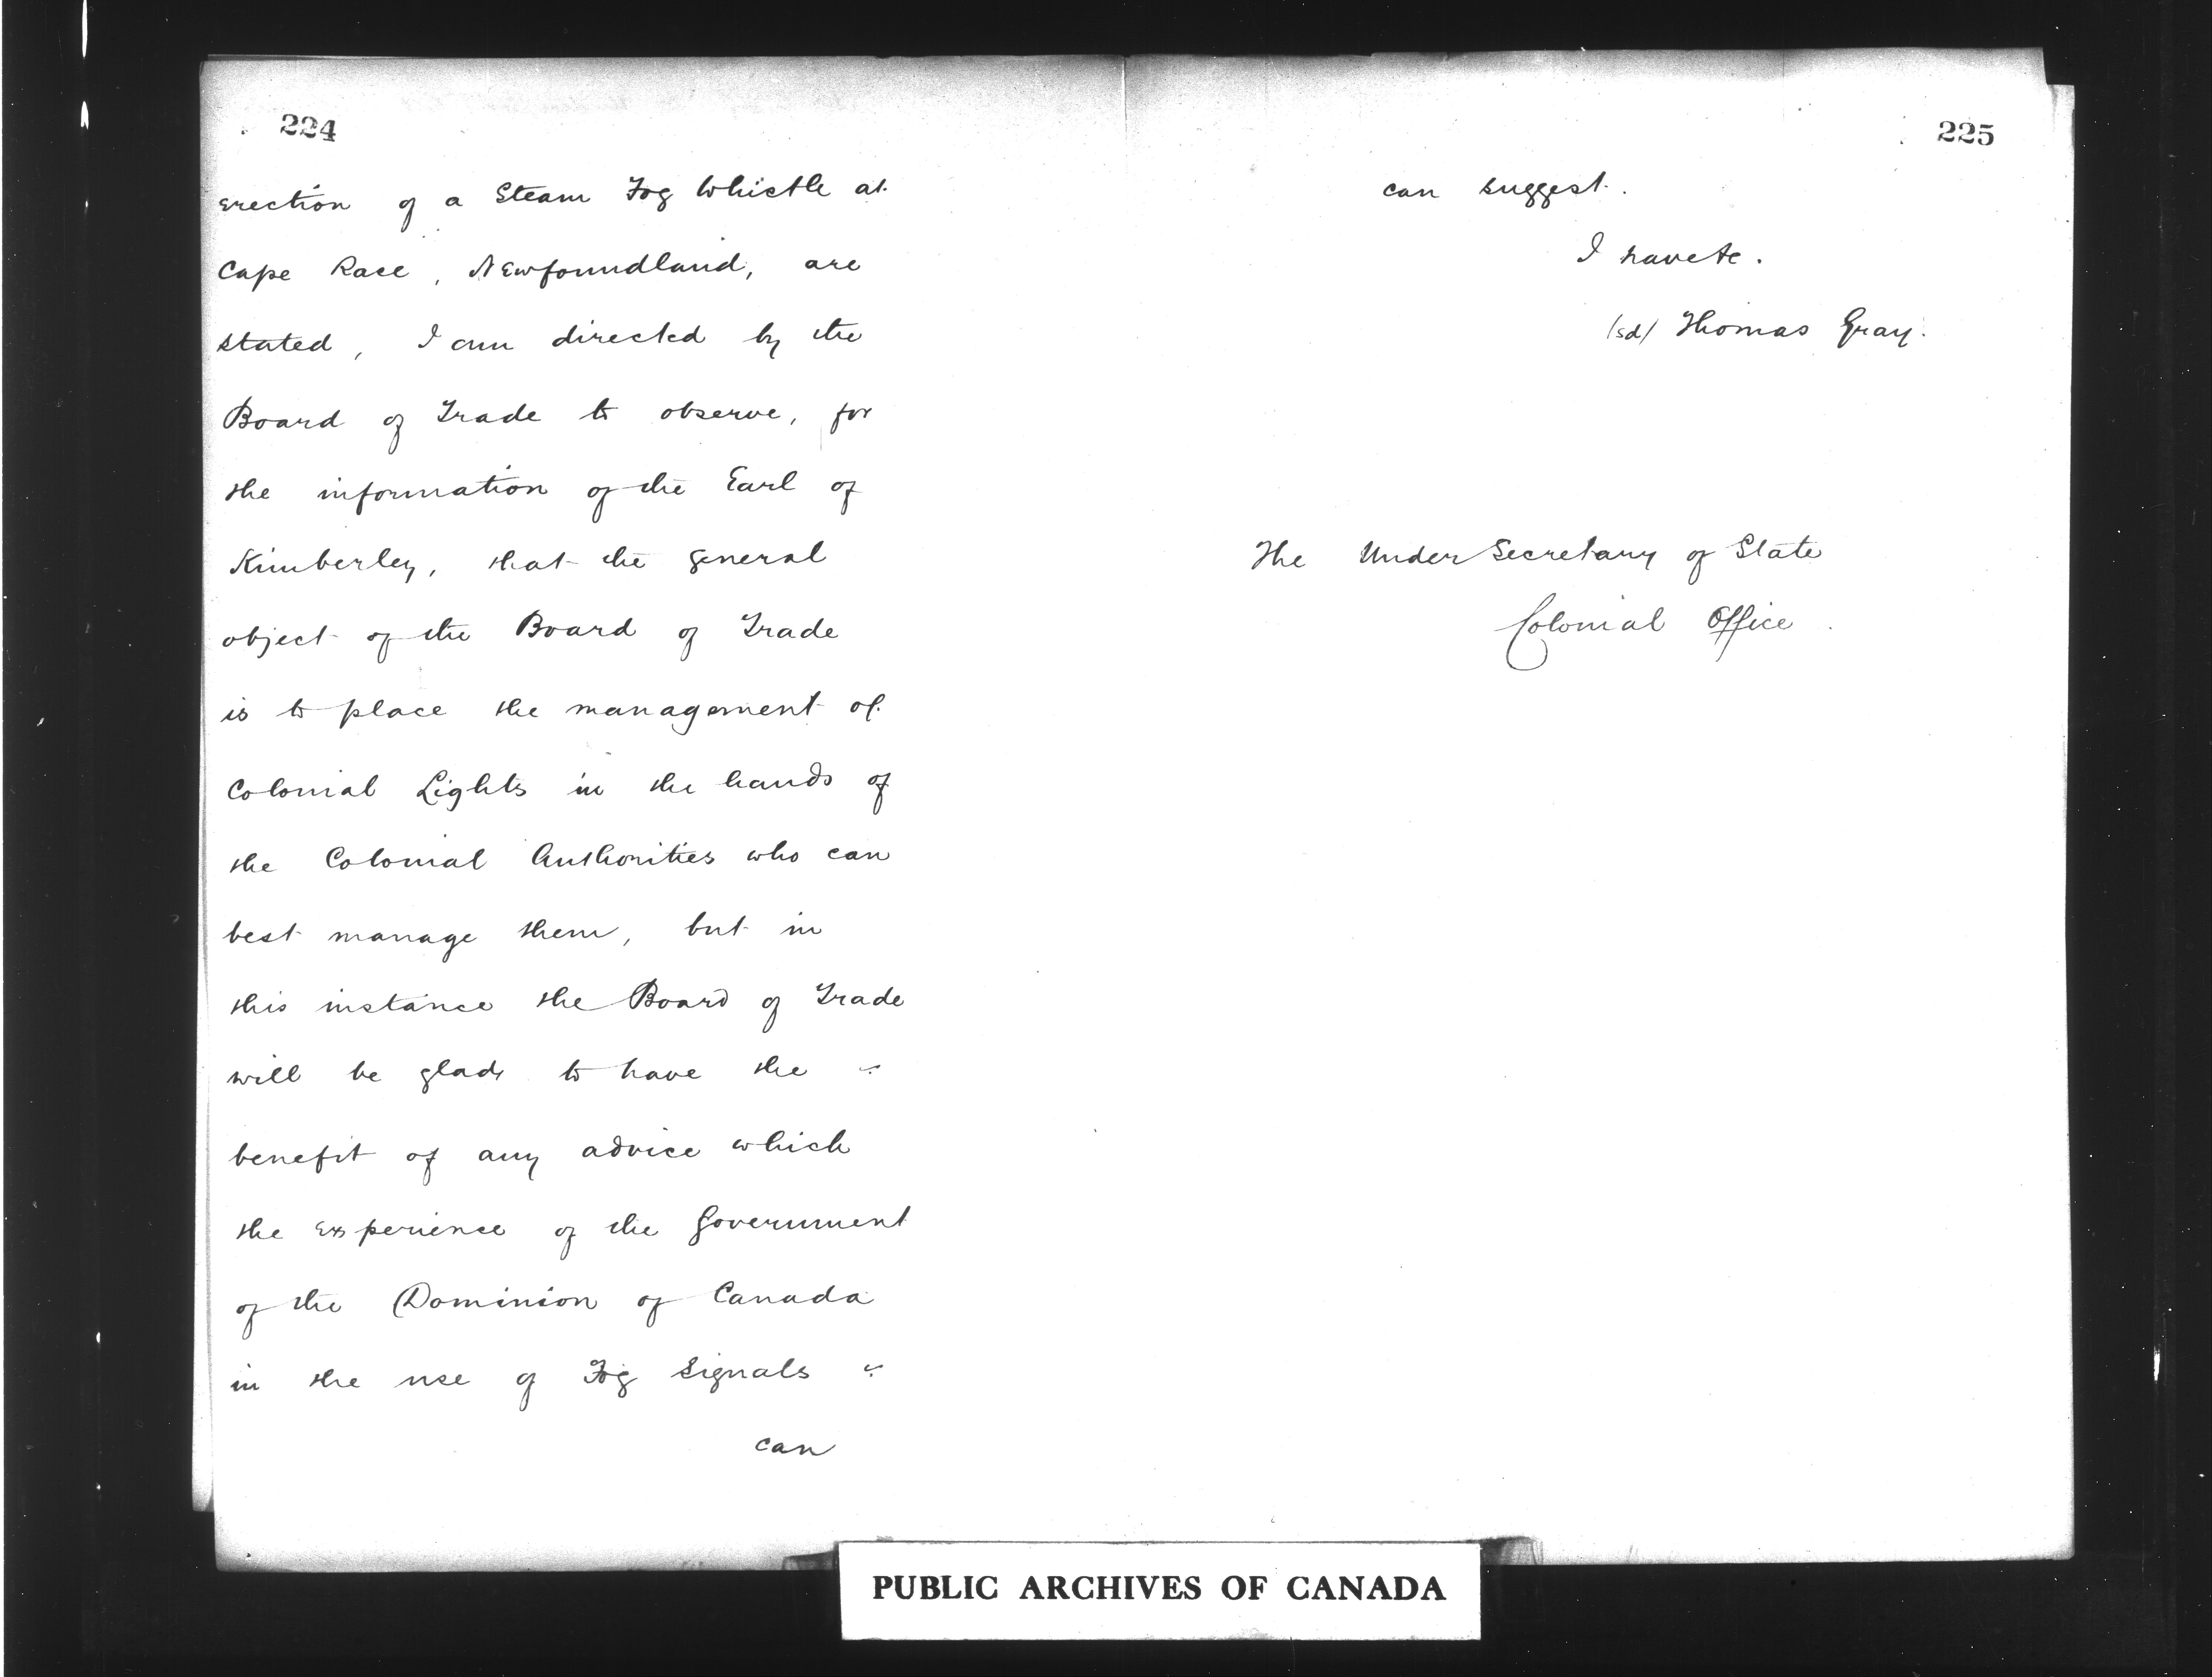 224
Erection of a Steam Fog Whistle at
Cape Race, Newfoundland, are
stated, I am directed by the
Board of Trade to observe, for
the information of the Earl of
Kimberley, that the general
object of the Board of Trade
is to place the management of
Colonial Lights in the hands of
the Colonial Authorities who can
best manage them, but in
this instance the Board of Trade
will be glad to have the
benefit of any advice which
the Experience of the Government
of the Dominion of Canada
in the use of Fog Signals
can
225
can suggest.
I have &c.
/sd/ Thomas Gray.
The Under Secretary of State
Colonial Office.
PUBLIC ARCHIVES OF CANADA